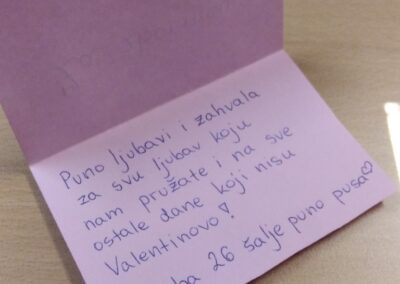 Puno ljubavi i zahvala
za svu ljubav koju
nam pružate i na sve
ostale dane koji nisu
Valentinovo!
26 šalje puno pusa♡